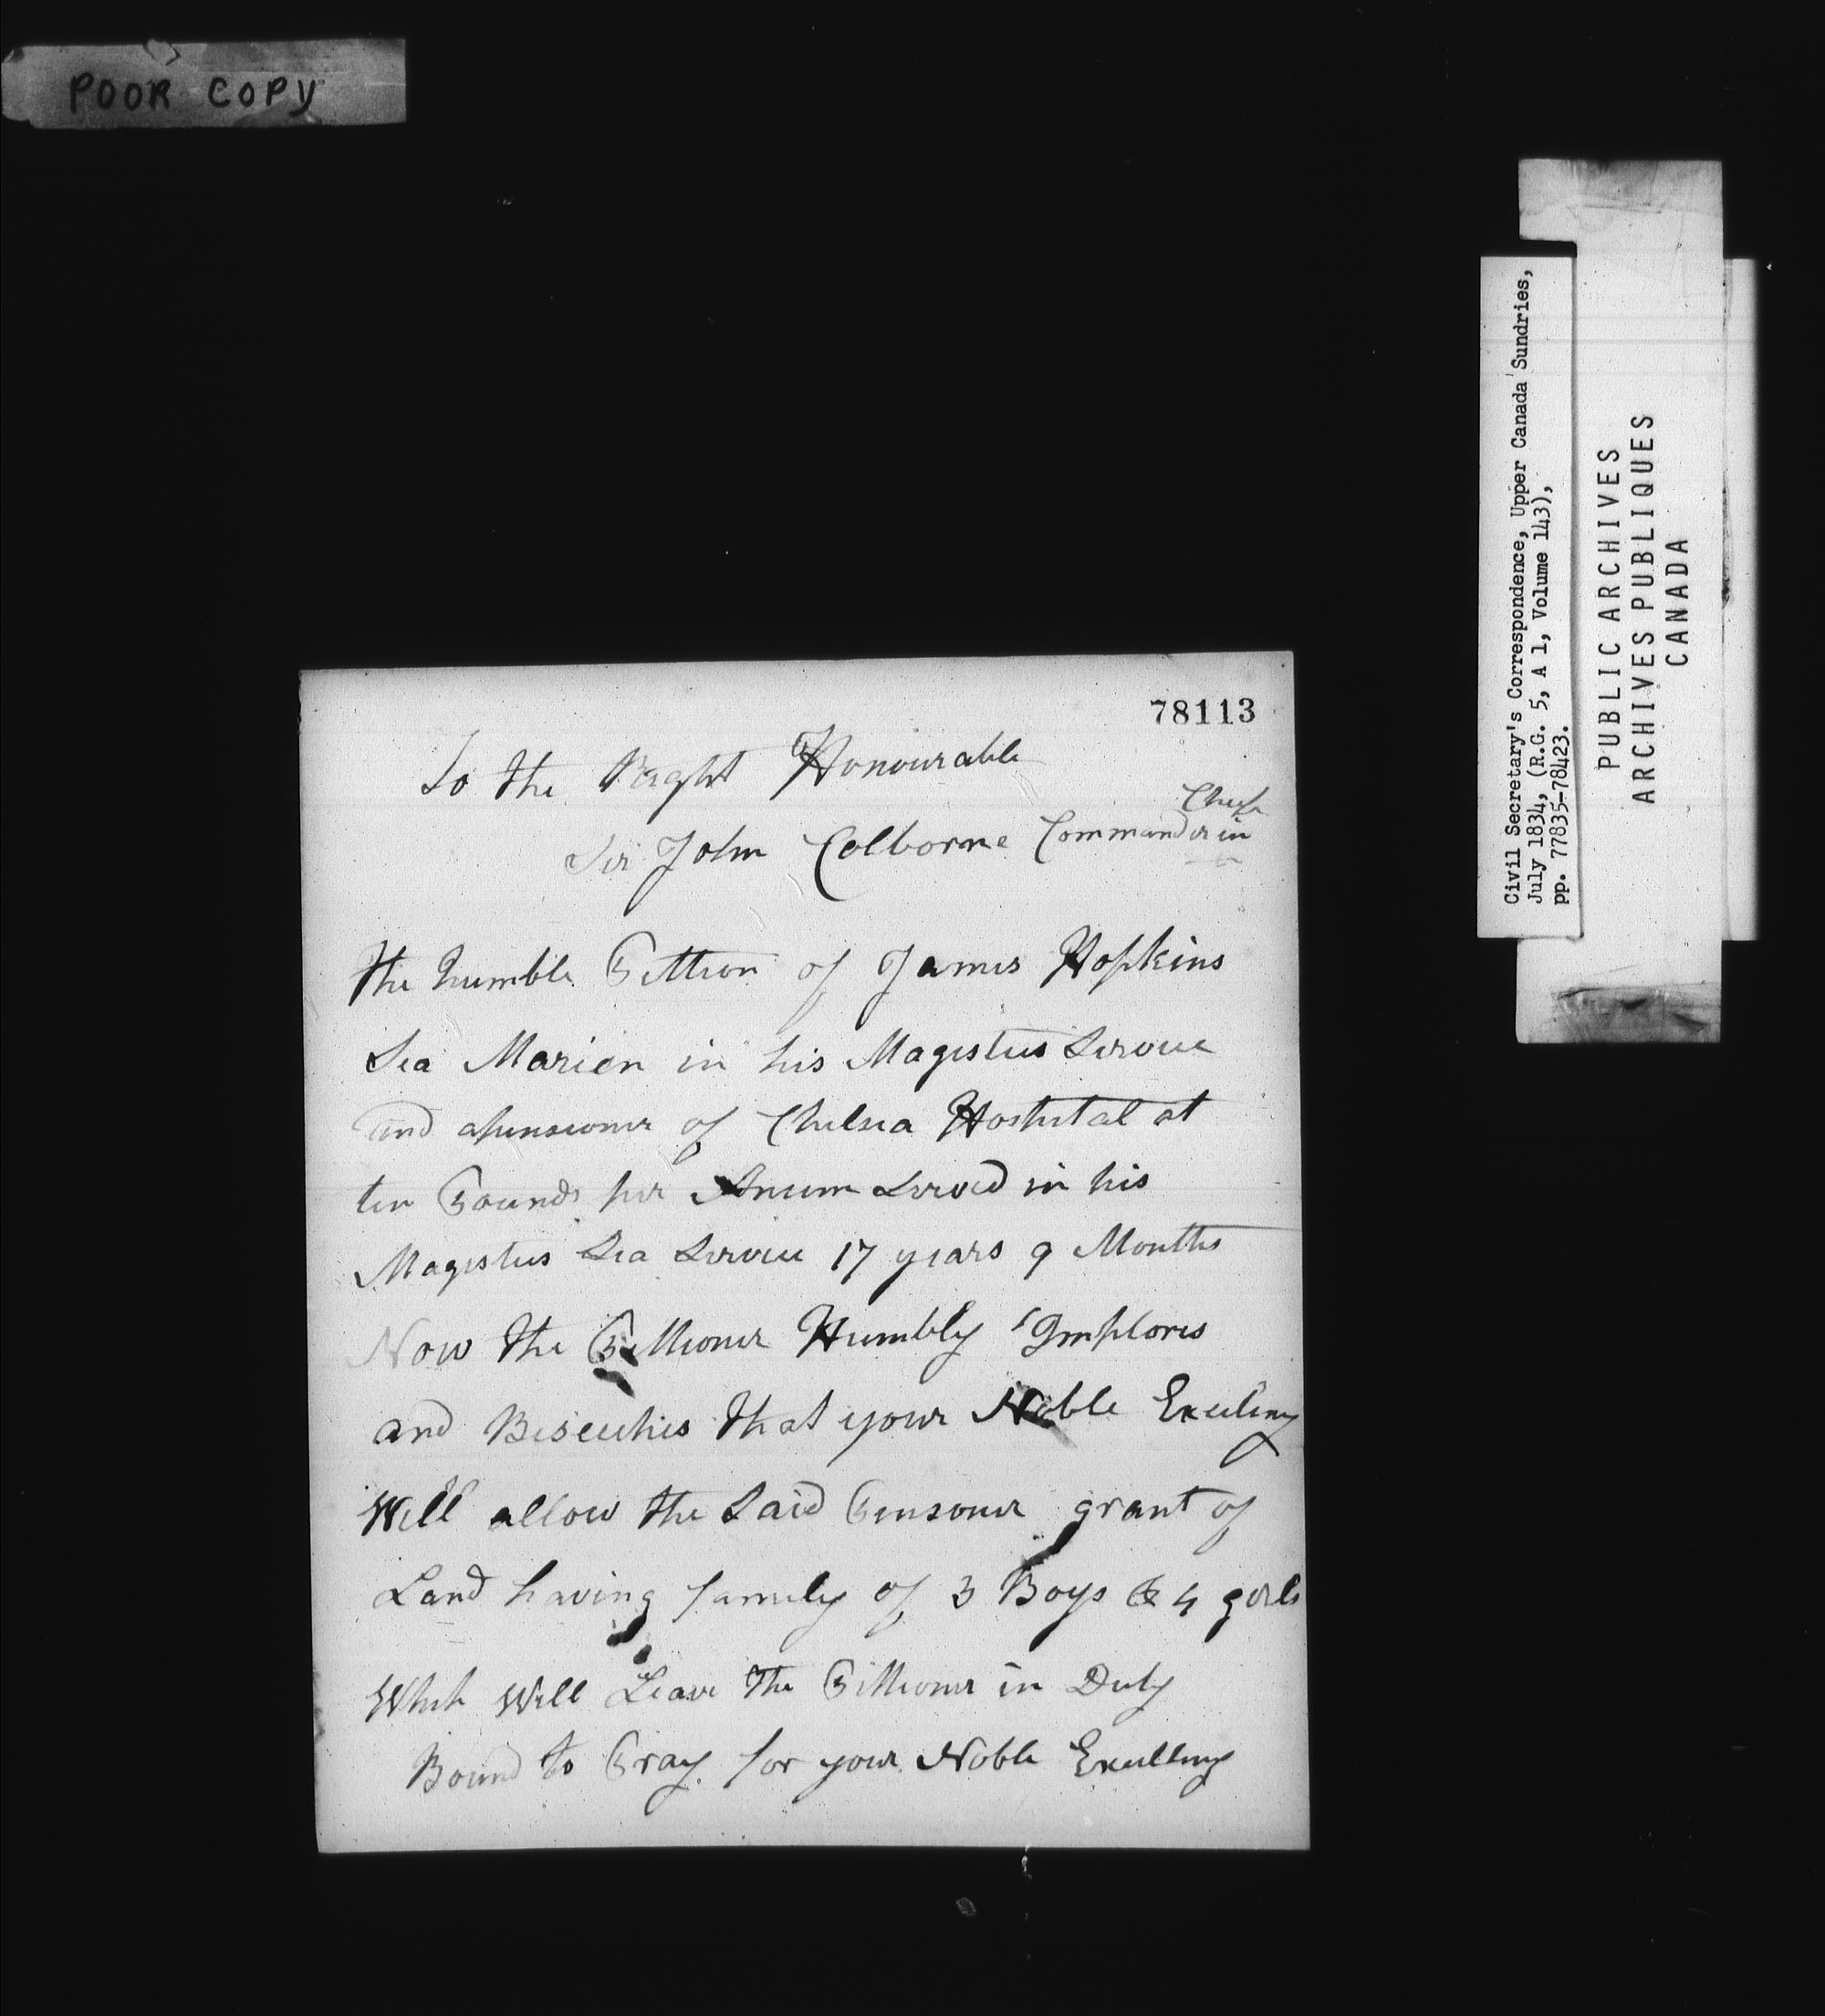 POOR COPY
Civil Secretary's Correspondence, Upper Canada Sundries,
July 1834, (R.G. 5, A 1, Volume 143),
pp. 77835-78423.
PUBLIC ARCHIVES
ARCHIVES PUBLIQUES
CANADA
78113
To the Right Honourable
Sir John Colborne Commander in Chief
The humble Pittion of James Hopkins
Sea Marien in his Magesties Service
and apensioner of Chelsea Hospital at
ten Pounds per Anum Served in his
Magesties Sea Service 17 years 9 Months
Now the Pittioner Humbly Implores
and Beseeches that your Noble Excelency
Will allow the Said Pensoner grant of
Land having family of 3 Boys & 4 girls
Which Will Leave the Pittioner in Duty
Bound to Pray for your Noble Excellency